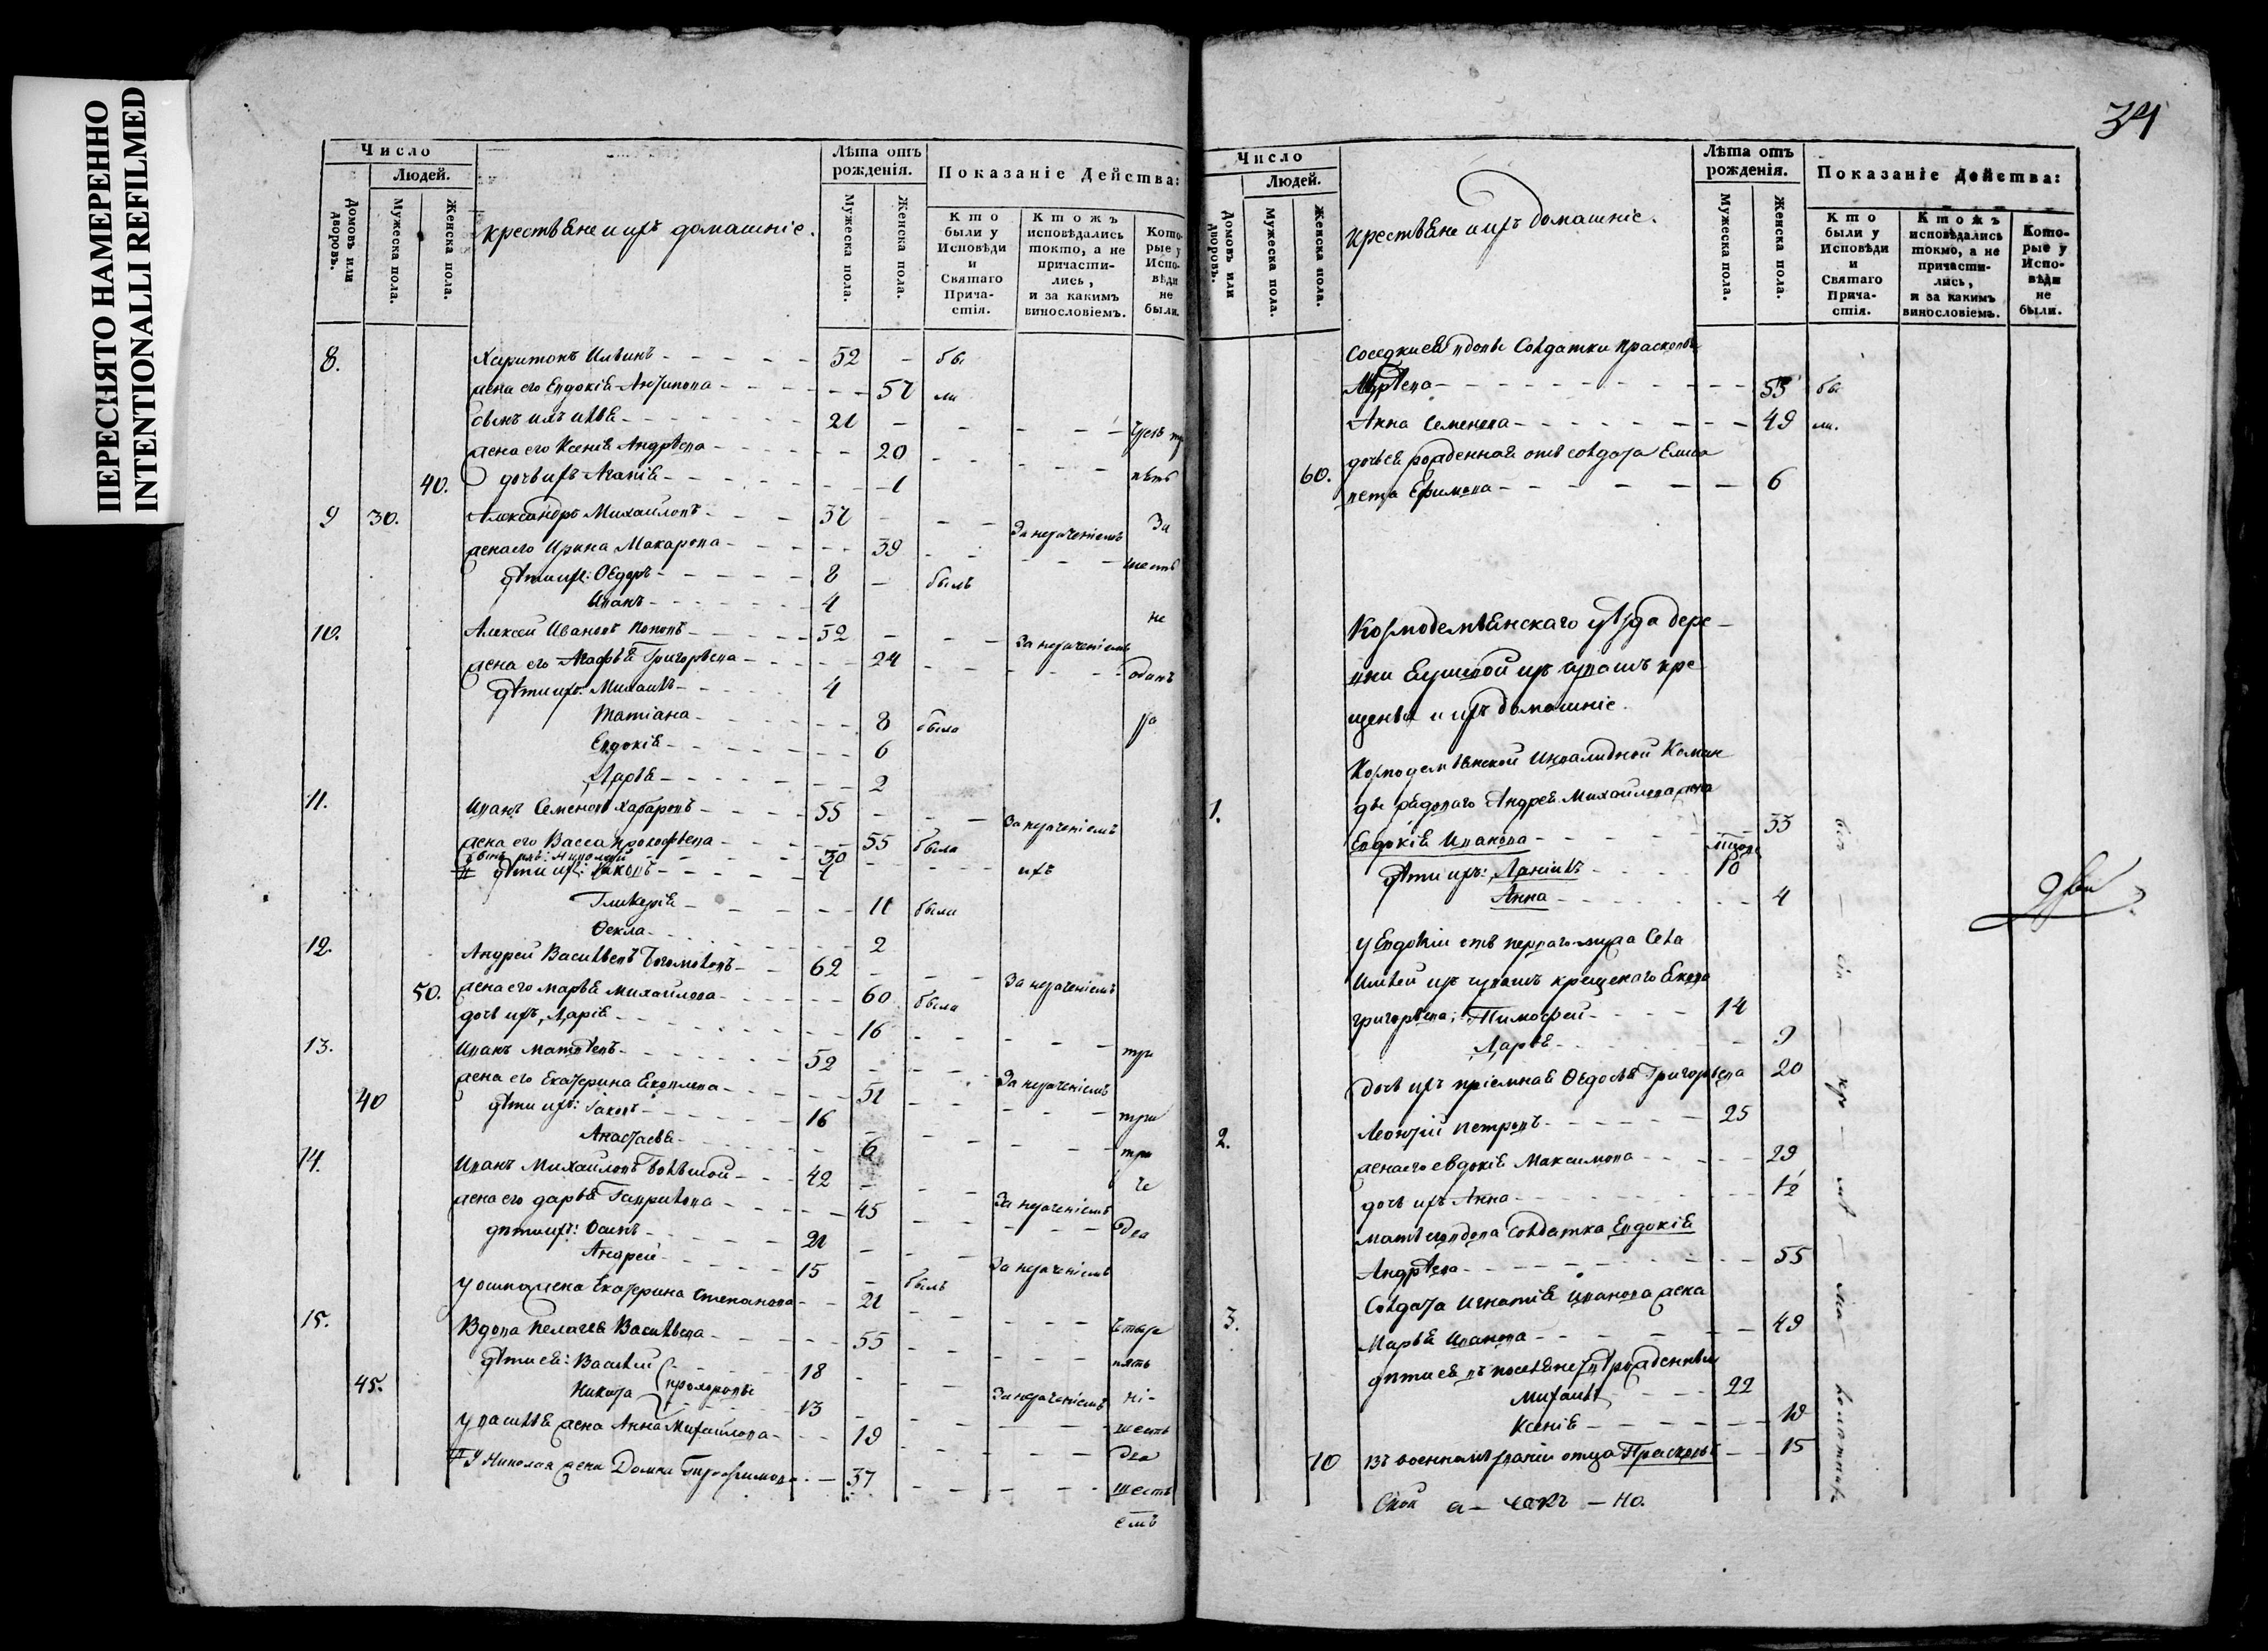 ПЕРЕСНЯТО НАМЕРЕННО
INTENTIONALLI REFILMED
Число
Людей.
Домовъ или дворовъ.
Мужеска пола.
Женска пола.
крестьяне и ихъ домашніе.
Лѣта отъ рожденія.
Мужеска пола.
Женска пола.
Показаніе Действа:
Кто были у Исповѣди и Святаго Прича-стія.
Ктожъ исповѣдались токмо, а не причасти-лись, и за какимъ винословіемъ.
Кото-рые у Испо-вѣди не были.
8. Харитонъ Ильинъ 52 бы
жена его Евдокія 51 ли
сынъ ихъ Илья 21
жена его Ксенія Андрѣева 20
40. дочь ихъ Агапія 1
9 30. Александръ Михайловъ 37 За нераченіемъ За
жена его Ирина Макарова 39
дѣти ихъ: Ѳедоръ 8 былъ
Иванъ 4 не
10. Алексей Ивановъ Поповъ 52 За нераченіемъ
жена его Агафья Григорьева 24
дѣти ихъ: Михаилъ 4
Татіана 8 была
Евдокія 6
Дарья 2
11. Иванъ Семеновъ Хабаровъ 55 За нераченіемъ
жена его Васса Прокофьева 55 была
сынъ ихъ: Николай 30
дѣти ихъ: Яковъ 1 ихъ
Гликерія 11 была
Ѳекла 2
12. Андрей Васильевъ Богомоловъ 62 За нераченіемъ
50. жена его Марья Михайлова 60 была
дочь ихъ, Дарія 16
13. Иванъ Матвѣевъ 52 три
жена его Екатерина Яковлева 51 За нераченіемъ
40 дѣти ихъ: Іаковъ 16 три
Анастасья 6 три
14. Иванъ Михайловъ Большой 42 че
жена его Дарья Гаврилова 45 За нераченіемъ
дѣти ихъ: Осипъ 21 два
Андрей 15 За нераченіемъ
у осипа жена Екатерина Степанова 21 былъ
15. Вдова Пелагея Васильева 55
дѣти ея: Василей 18 пять
45. Никита Прохоровы 13 За нераченіемъ
у василья жена Анна Михайлова 19 шесть
У Николая жена Домна 37 шесть
34
Число
Людей.
Домовъ или дворовъ.
Мужеска пола.
Женска пола.
крестьяне и ихъ домашніе.
Лѣта отъ рожденія.
Мужеска пола.
Женска пола.
Показаніе Действа:
Кто были у Исповѣди и Святаго Прича-стія.
Ктожъ исповѣдались токмо, а не причасти-лись, и за какимъ винословіемъ.
Кото-рые у Испо-вѣди не были.
вдовы Солдатки Прасковья
55 бы
Анна Семенова 49 ли.
дочь ея рожденная отъ солдата Елиса
60. вета Ефимова 6
Козмодемьянскаго уѣзда дере-
вни изъ чувашъ кре
щены и ихъ домашніе.
Козмодемьянской Инвалидной Коман
1. ды рядоваго Андрея Михайлова жена
Евдокія Иванова 33
дѣти ихъ: Даніилъ 10
Анна 4
у Евдокіи отъ перваго мужа Села
изъ чувашъ крещенаго Якова
григорьева: Тимофей 14
Дарья 9
дочь ихъ пріемная Ѳедосья Григорьева 20
2. Леонтій Петровъ 25
жена его евдокія Максимова 29
дочь ихъ Анна 1/2
мать его вдова Солдатка Евдокія
Андрѣева 55
Солдата Игнатія Иванова жена
3. Марья Иванова 49
дѣти ея
Михаилъ 22
Ксенія 18
10 въ военномъ званіи отца Прасковья 15